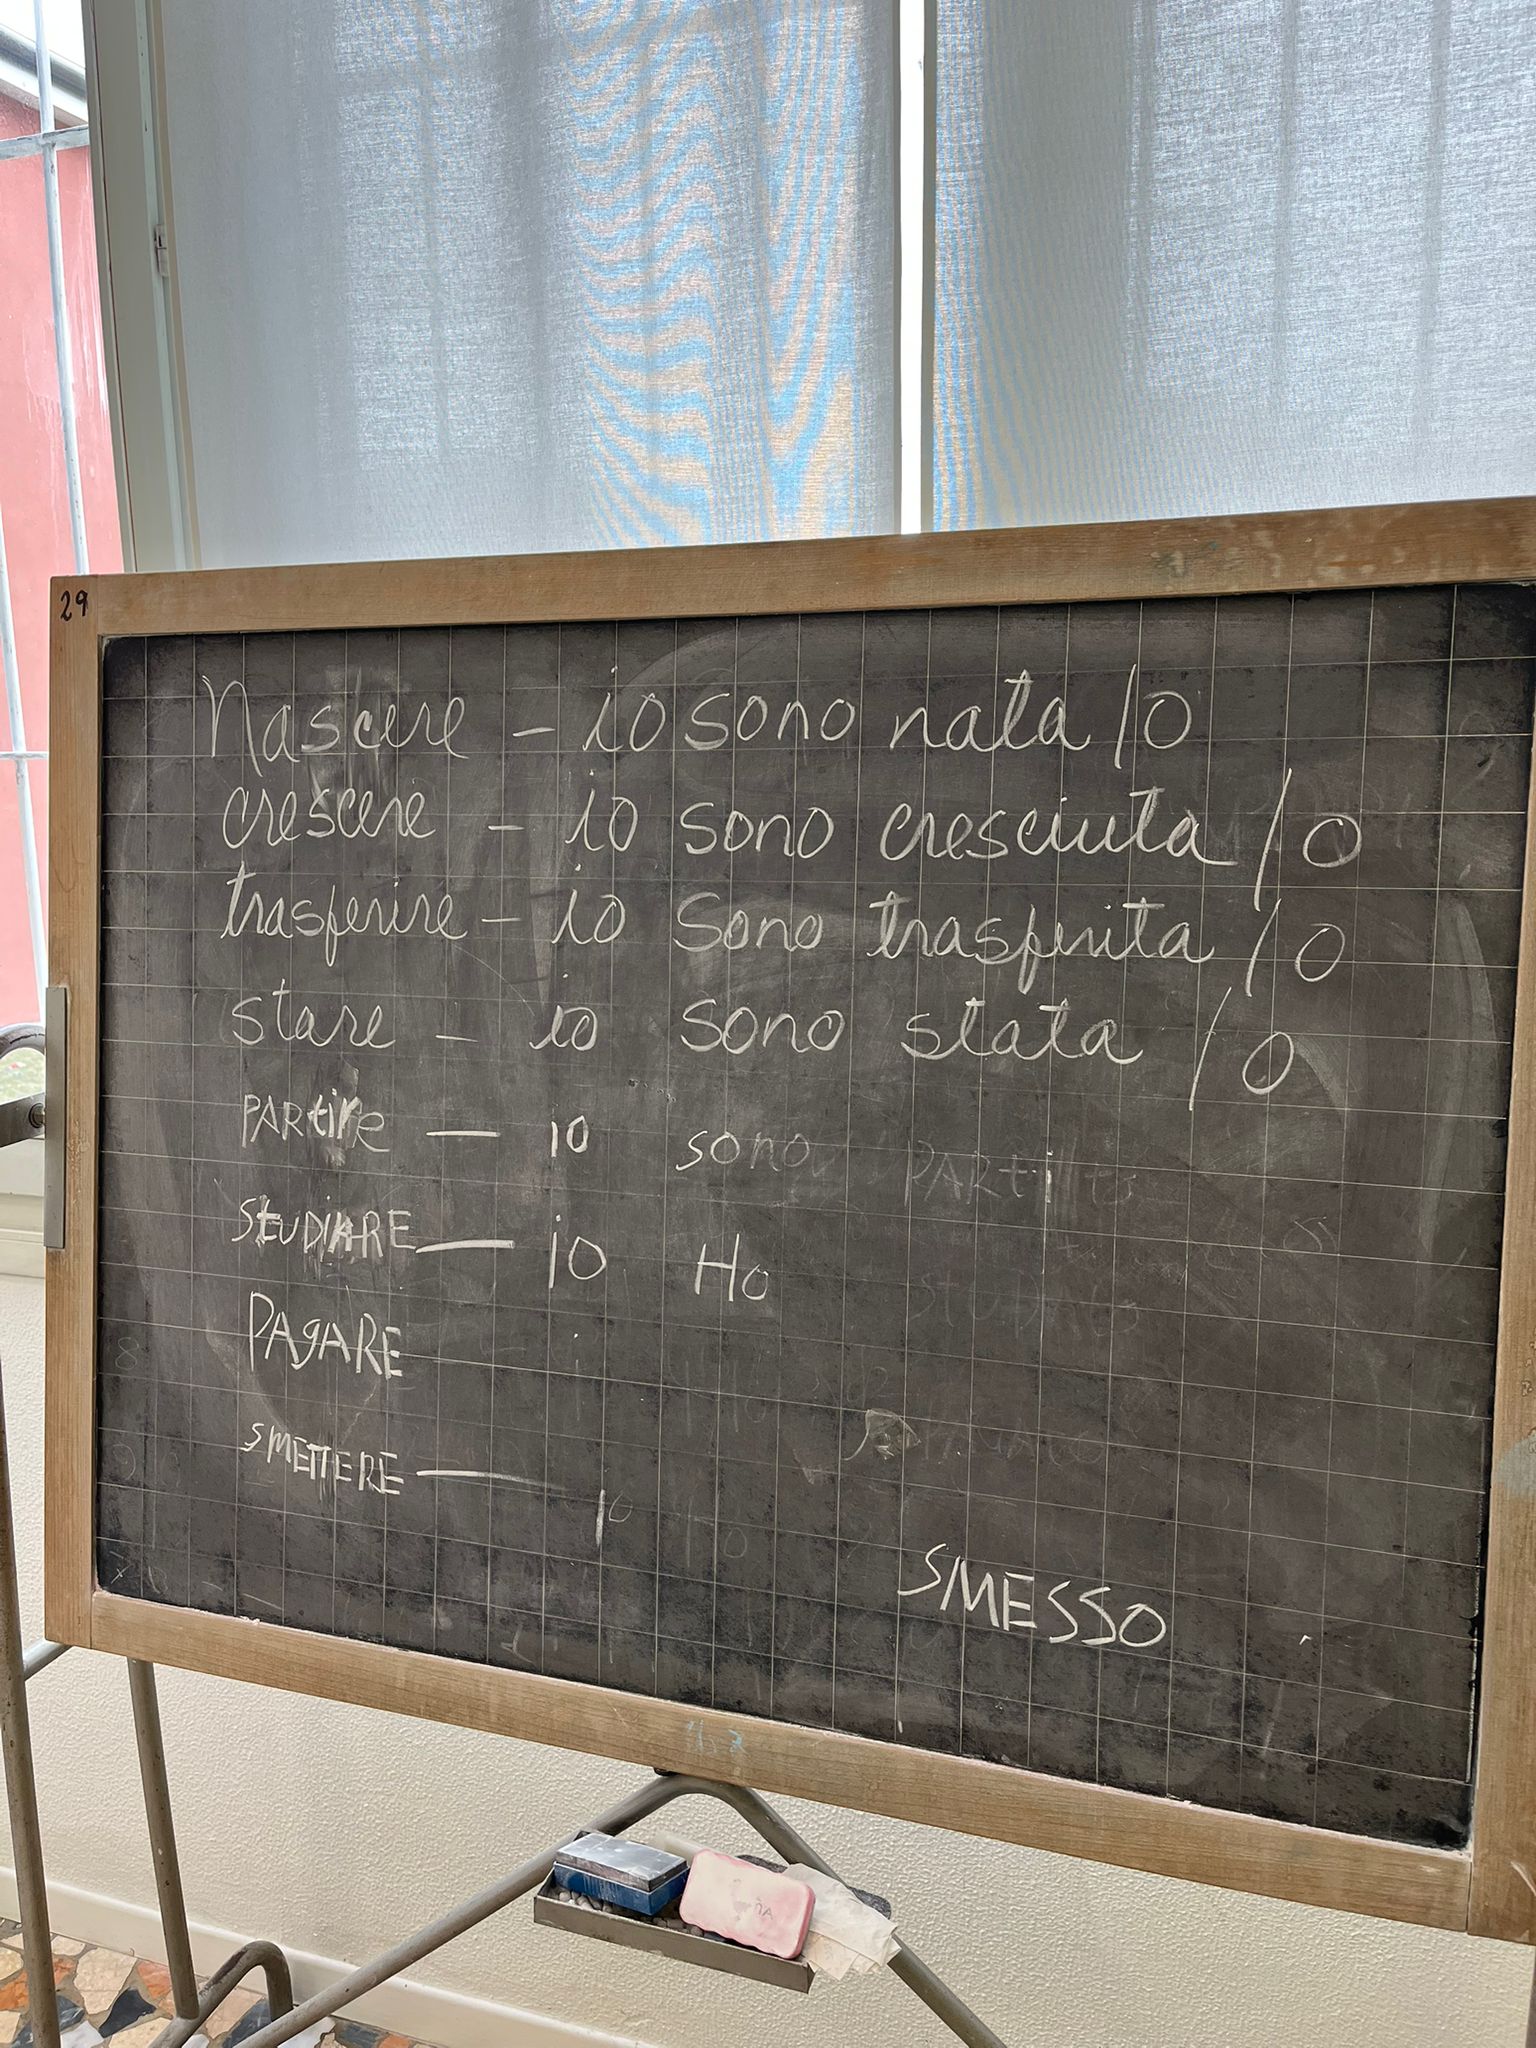 29
Nascere - io sono nata/o
crescere - io sono cresciuta/o
trasferire - io sono trasferita/o
stare - io sono stata/o
PARtire — io sono PARtito
STUDIARE — io Ho
PAgARE
SMETTERE — io HO
SMESSO